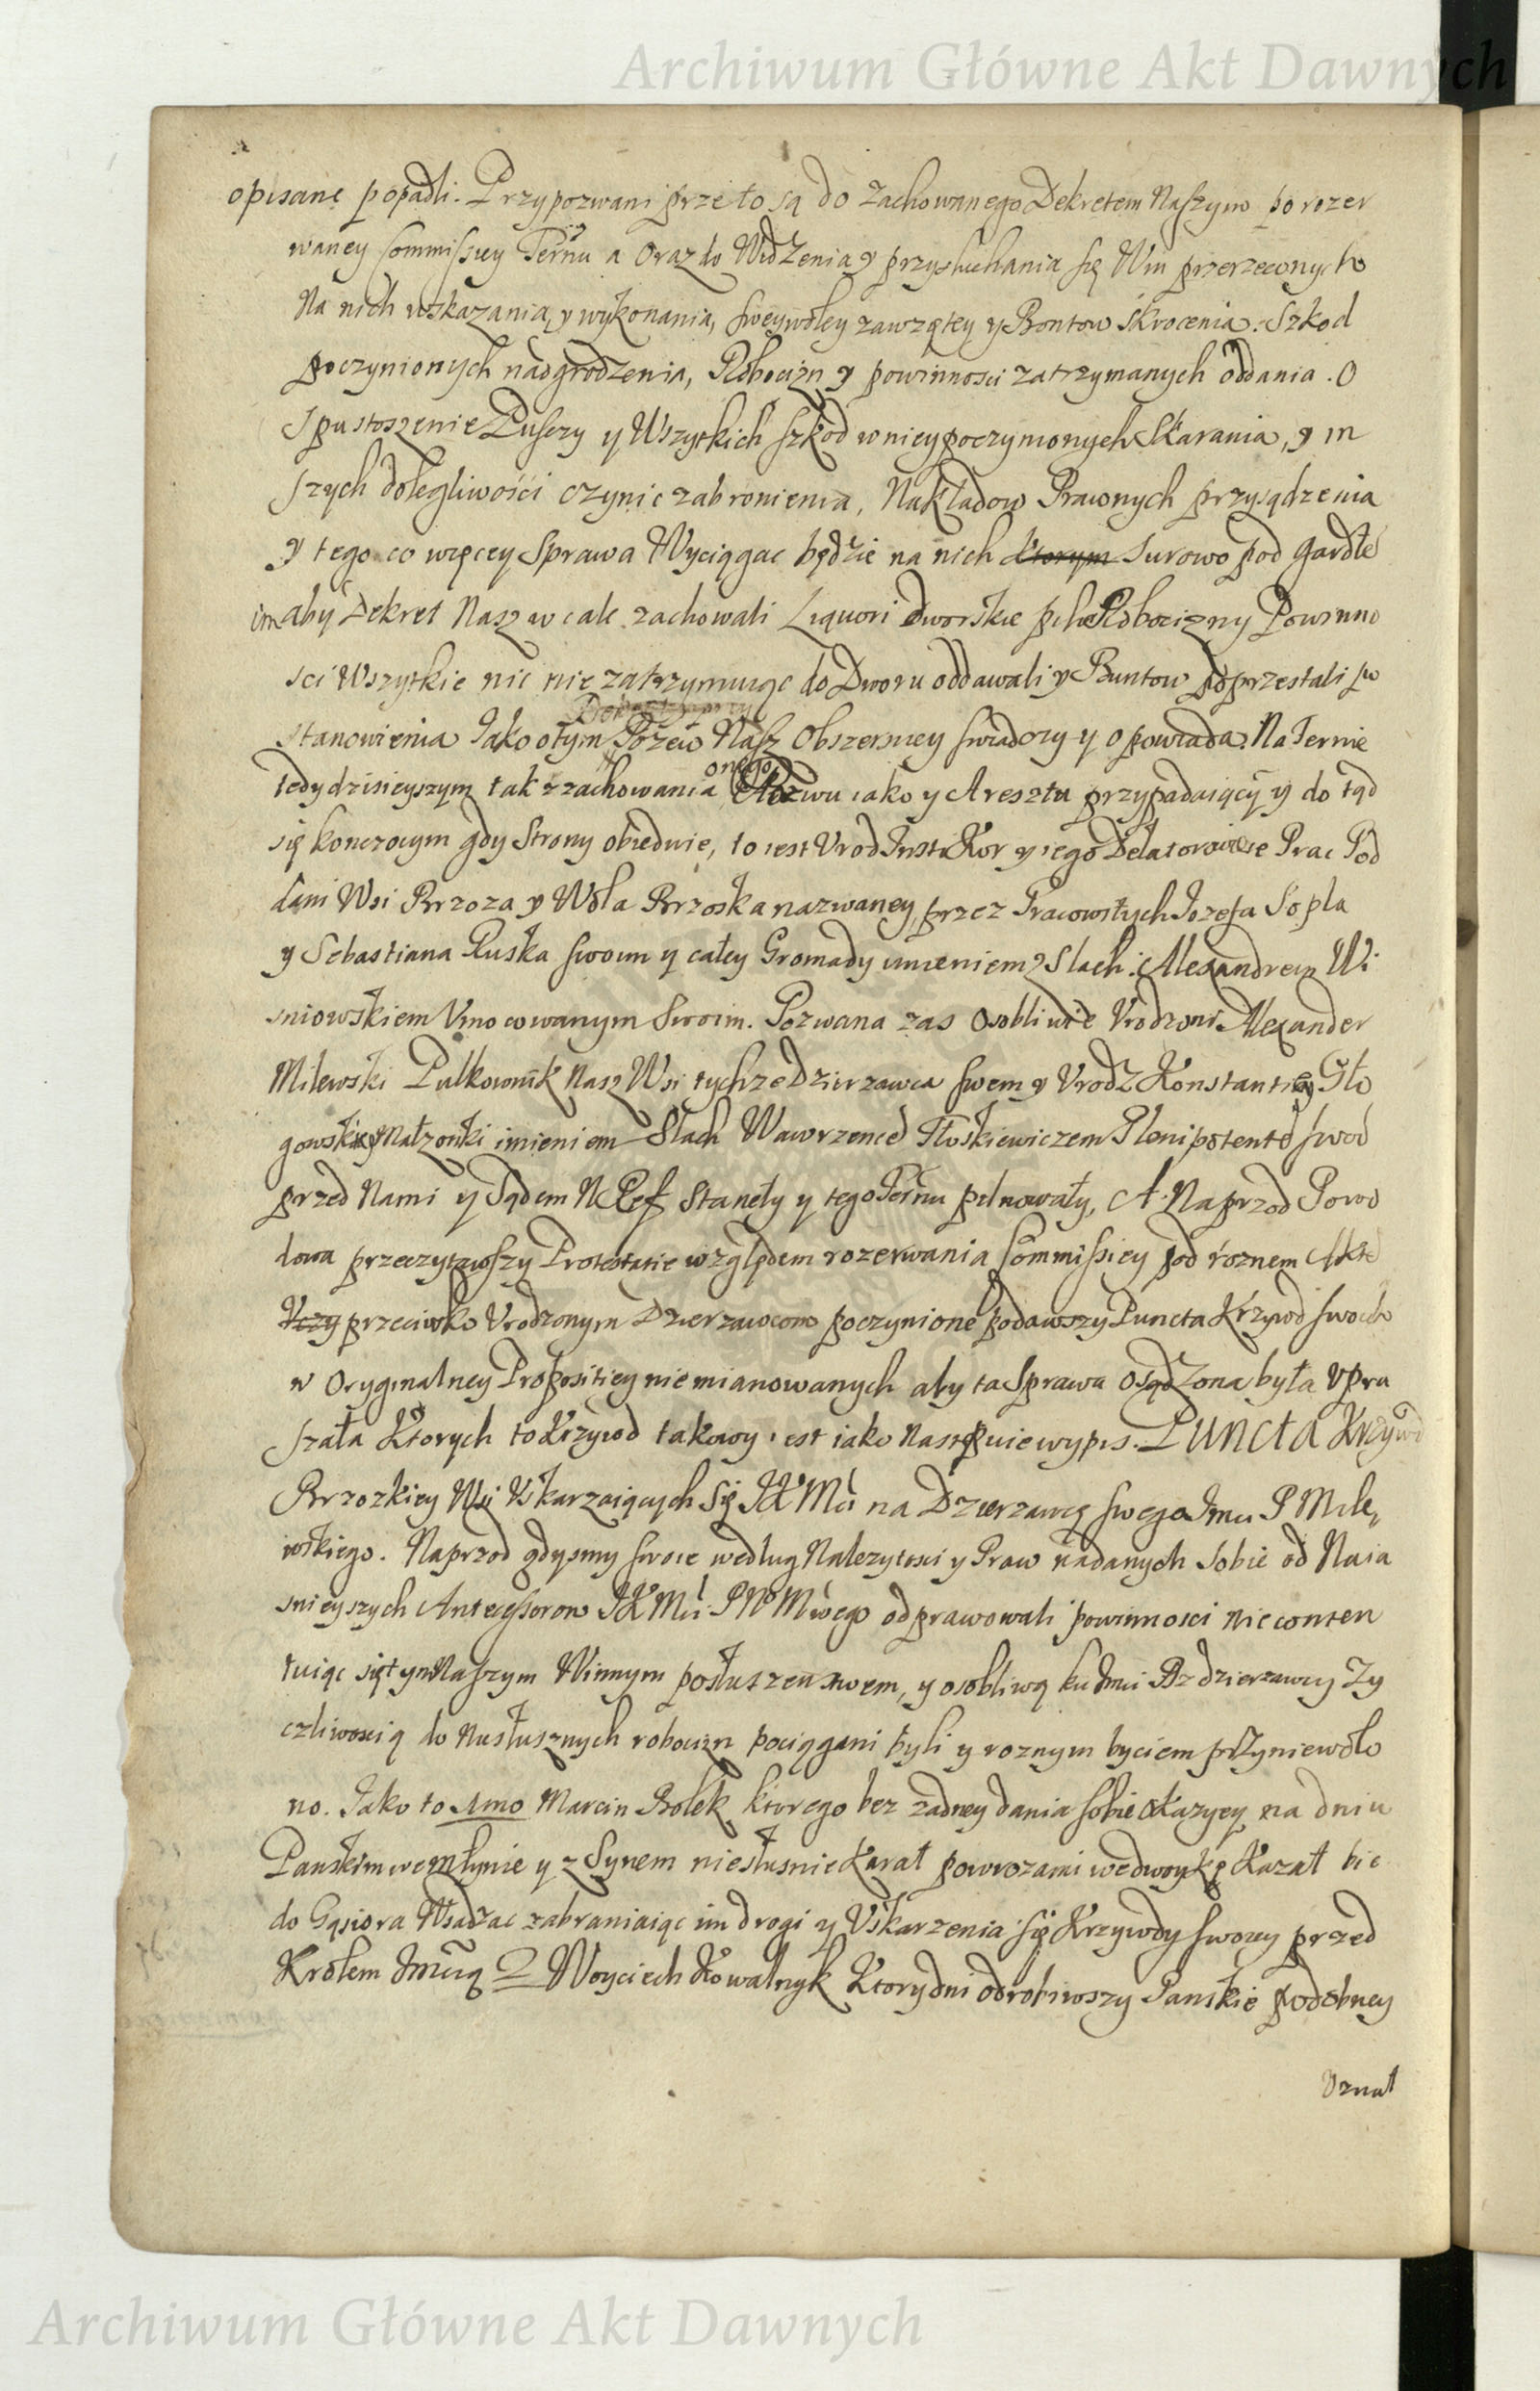 Archiwum Główne Akt Dawnych
opisane popadli. Przypozwani przeto są do zachowanego Dekretem Naszym po rozer
waney Commissiey Ternu a Oraz do Widzenia y przysłuchania się Win przerzeconych
Na nich wskazania, y wykonania, swey woley zawzętey y Bontow skrocenia. Szkod
poczynionych nadgrodzenia, Robocizn y powinnosci zatrzymanych oddania. O
Spustoszenie Puszczy y Wszytkich szkod w niey poczynionych Skarania, y in
szych dolegliwości czynic zabronienia, Nakładow Prawnych przysądzenia
y tego co więcey Sprawa Wyciągac będzie na nich ktorym surowo pod gardłe
im aby Dekret Nasz w cale zachowali Robocizny Powinno
sci Wszytkie nic nie zatrzymuiąc do Dworu oddawali y Buntow poprzestali po
stanowienia Jako o tym Pozew Nasz Obszerniey swiadczy y opowiada. Na Termie
tedy dzisieyszym tak z zachowania onego Pozwu iako y Aresztu przypadaiący y do tąd
się konczocym gdy Strony obiedwie, to iest Urod Insti Kor y iego Delatorowie Prac Pod
dani Wsi Brzoza y Wola Brzoska nazwaney, przez Pracowitych Jozefa Sopla
y Sebastiana Ruska swoim y całey Gromady imieniem z Slach: Alexandrem Wi
sniowskiem Umocowanym Swoim. Pozwana zas osobliwie Urodzoni Alexander
Milewski Pułkownik Nasz Wsi tychze Dzierzawca swem y Urodz Konstantiey Gło
gowskiey Małzonki imieniem Slach Wawrzencem Plenipotente swod
przed Nami y Sądem N Ref Stanęły y tego Ternu pilnowały, A Naprzod Powo
dowa przeczytawszy Protestatie względem rozerwania Commissiey pod roznem Akte
przeciwko Urodzonym Dzierzawcom poczynione podawszy Puncta Krzywd swoich
w Oryginalney Propositiey nie mianowanych aby ta Sprawa osądzona była upra
szała Ktorych to Krzywd takowy iest iako nastempuie wypis. Puncta Krzywd
Brzozkiey Wsi Uskarzaiących Się JKMci na Dzierzawcę swego Jmci P Mile,
wskiego. Naprzod gdysmy swoie według Nalezytosci y Praw nadanych sobie od Naia
snieyszych Antecessorow JKMci PN Mwego odprawowali powinnosci nie conten
tuiąc się tym Naszym Winnym posłuszenstwem, y osobliwą ku Jmci Pz dzierzawcy Zy
czliwoscią do Niesłusznych robocizn pociągani byli y roznym byciem przyniewolo
no. Jako to 1mo Marcin Bolek, ktorego bez zadney dania sobie okazyey na dniu
Panskim we młynie y z Synem niesłusnie karał powrozami we dwoykę kazał bic
do Gąsiora Wsadzac zabraniaiąc im drogi y Uskarzenia się Krzywdy swoiey przed
Krolem Jmcią 2 Woyciech Kowalczyk Ktory dni odrobiwszy Panskie podobney
Uznał
Archiwum Główne Akt Dawnych